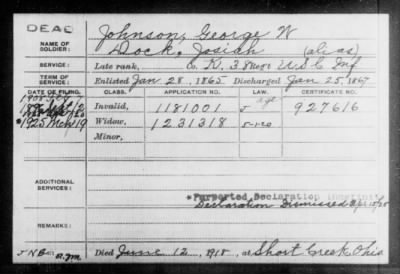 DEAD
Johnson, George W
NAME OF SOLDIER: Dock, Josiah (alias)
SERVICE: Late rank, Co. K, 38 Regt U.S.C. Inf
TERM OF SERVICE: Enlisted Jan 28, 1865 Discharged Jan 25, 1867
DATE OF FILING. CLASS. APPLICATION NO. LAW. CERTIFICATE NO.
Invalid, 1181001 age 927616
*1925 Mch 19 Widow, 1231318
Minor,
ADDITIONAL SERVICES:
*Purported Declaration
Declaration Dismissed
REMARKS:
Died June 12, 1918, at Short Creek Ohio